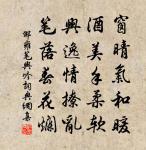 窗晴氣和暖
酒美手柔軟
興逸情撩亂
筆落春花爛
邵雍筆興吟詞典網集